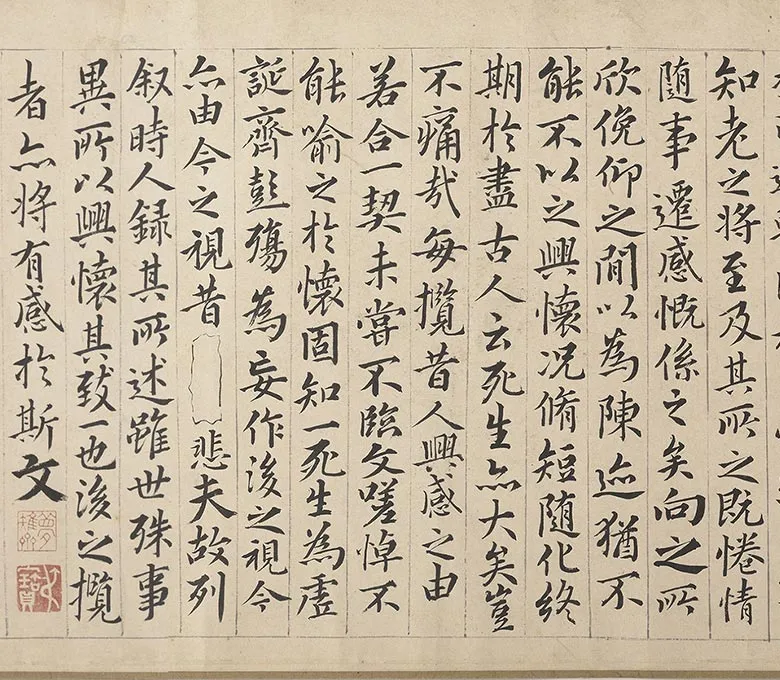 知老之將至及其所之既惓情
隨事遷感慨係之矣向之所
欣俛仰之間以為陳迹猶不
能不以之興懷况脩短隨化終
期於盡古人云死生亦大矣豈
不痛哉每攬昔人興感之由
若合一契未嘗不臨文嗟悼不
能喻之於懷固知一死生為虛
誕齊彭殤為妄作後之視今
亦由今之視昔 悲夫故列
叙時人録其所述雖世殊事
異所以興懷其致一也後之攬
者亦將有感於斯文